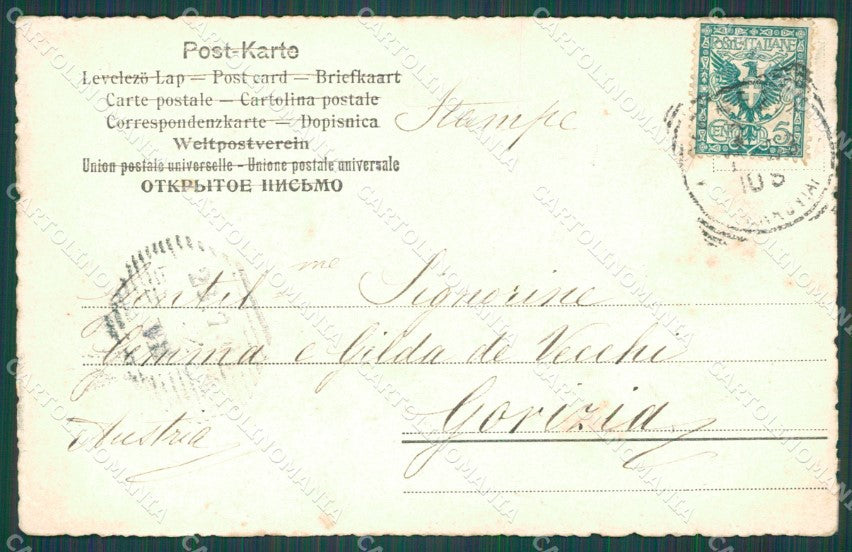 Post-Karte
Levelező Lap — Post card — Briefkaart
Carte postale — Cartolina postale
Correspondenzkarte — Dopisnica
Weltpostverein
Union postale universelle - Unione postale universale
ОТКРЫТОЕ ПИСЬМО
Stampe
POSTE ITALIANE
CENT. 5
Gentil.me Signorine
Gemma e Gilda de Vecchi
Gorizia
Austria
CARTOLINOMANIA